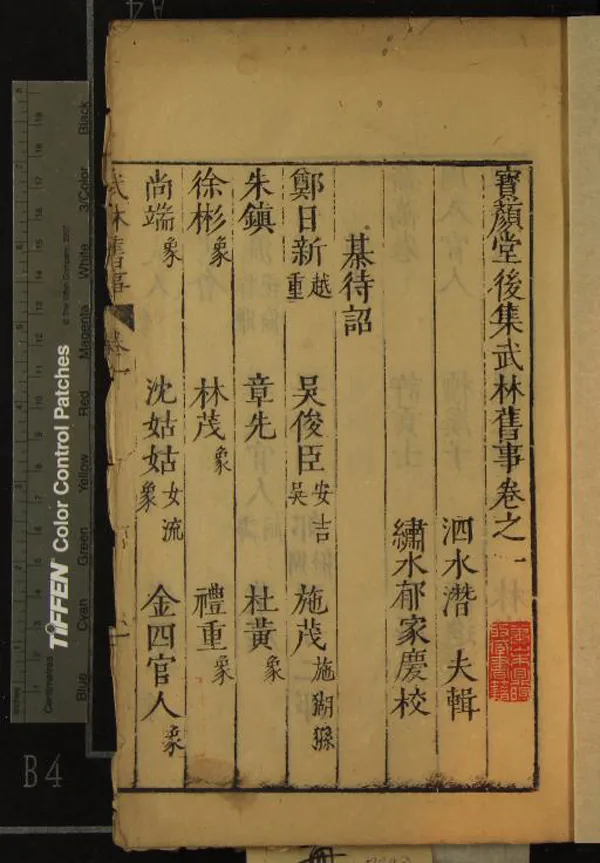 寶顏堂後集武林舊事卷之一
泗水潛 夫輯
繡水郁家慶校
棊待詔
鄭日新越重 吳俊臣安吉吳 施茂施猢猻
朱鎮 章先 杜黃象
徐彬象 林茂象 禮重象
尚端象 沈姑姑女流象 金四官人象
武林舊事 卷一
TIFFEN Color Control Patches
Blue Cyan Green Yellow Red Magenta White 3/Color Black
Centimetres
Inches
B4